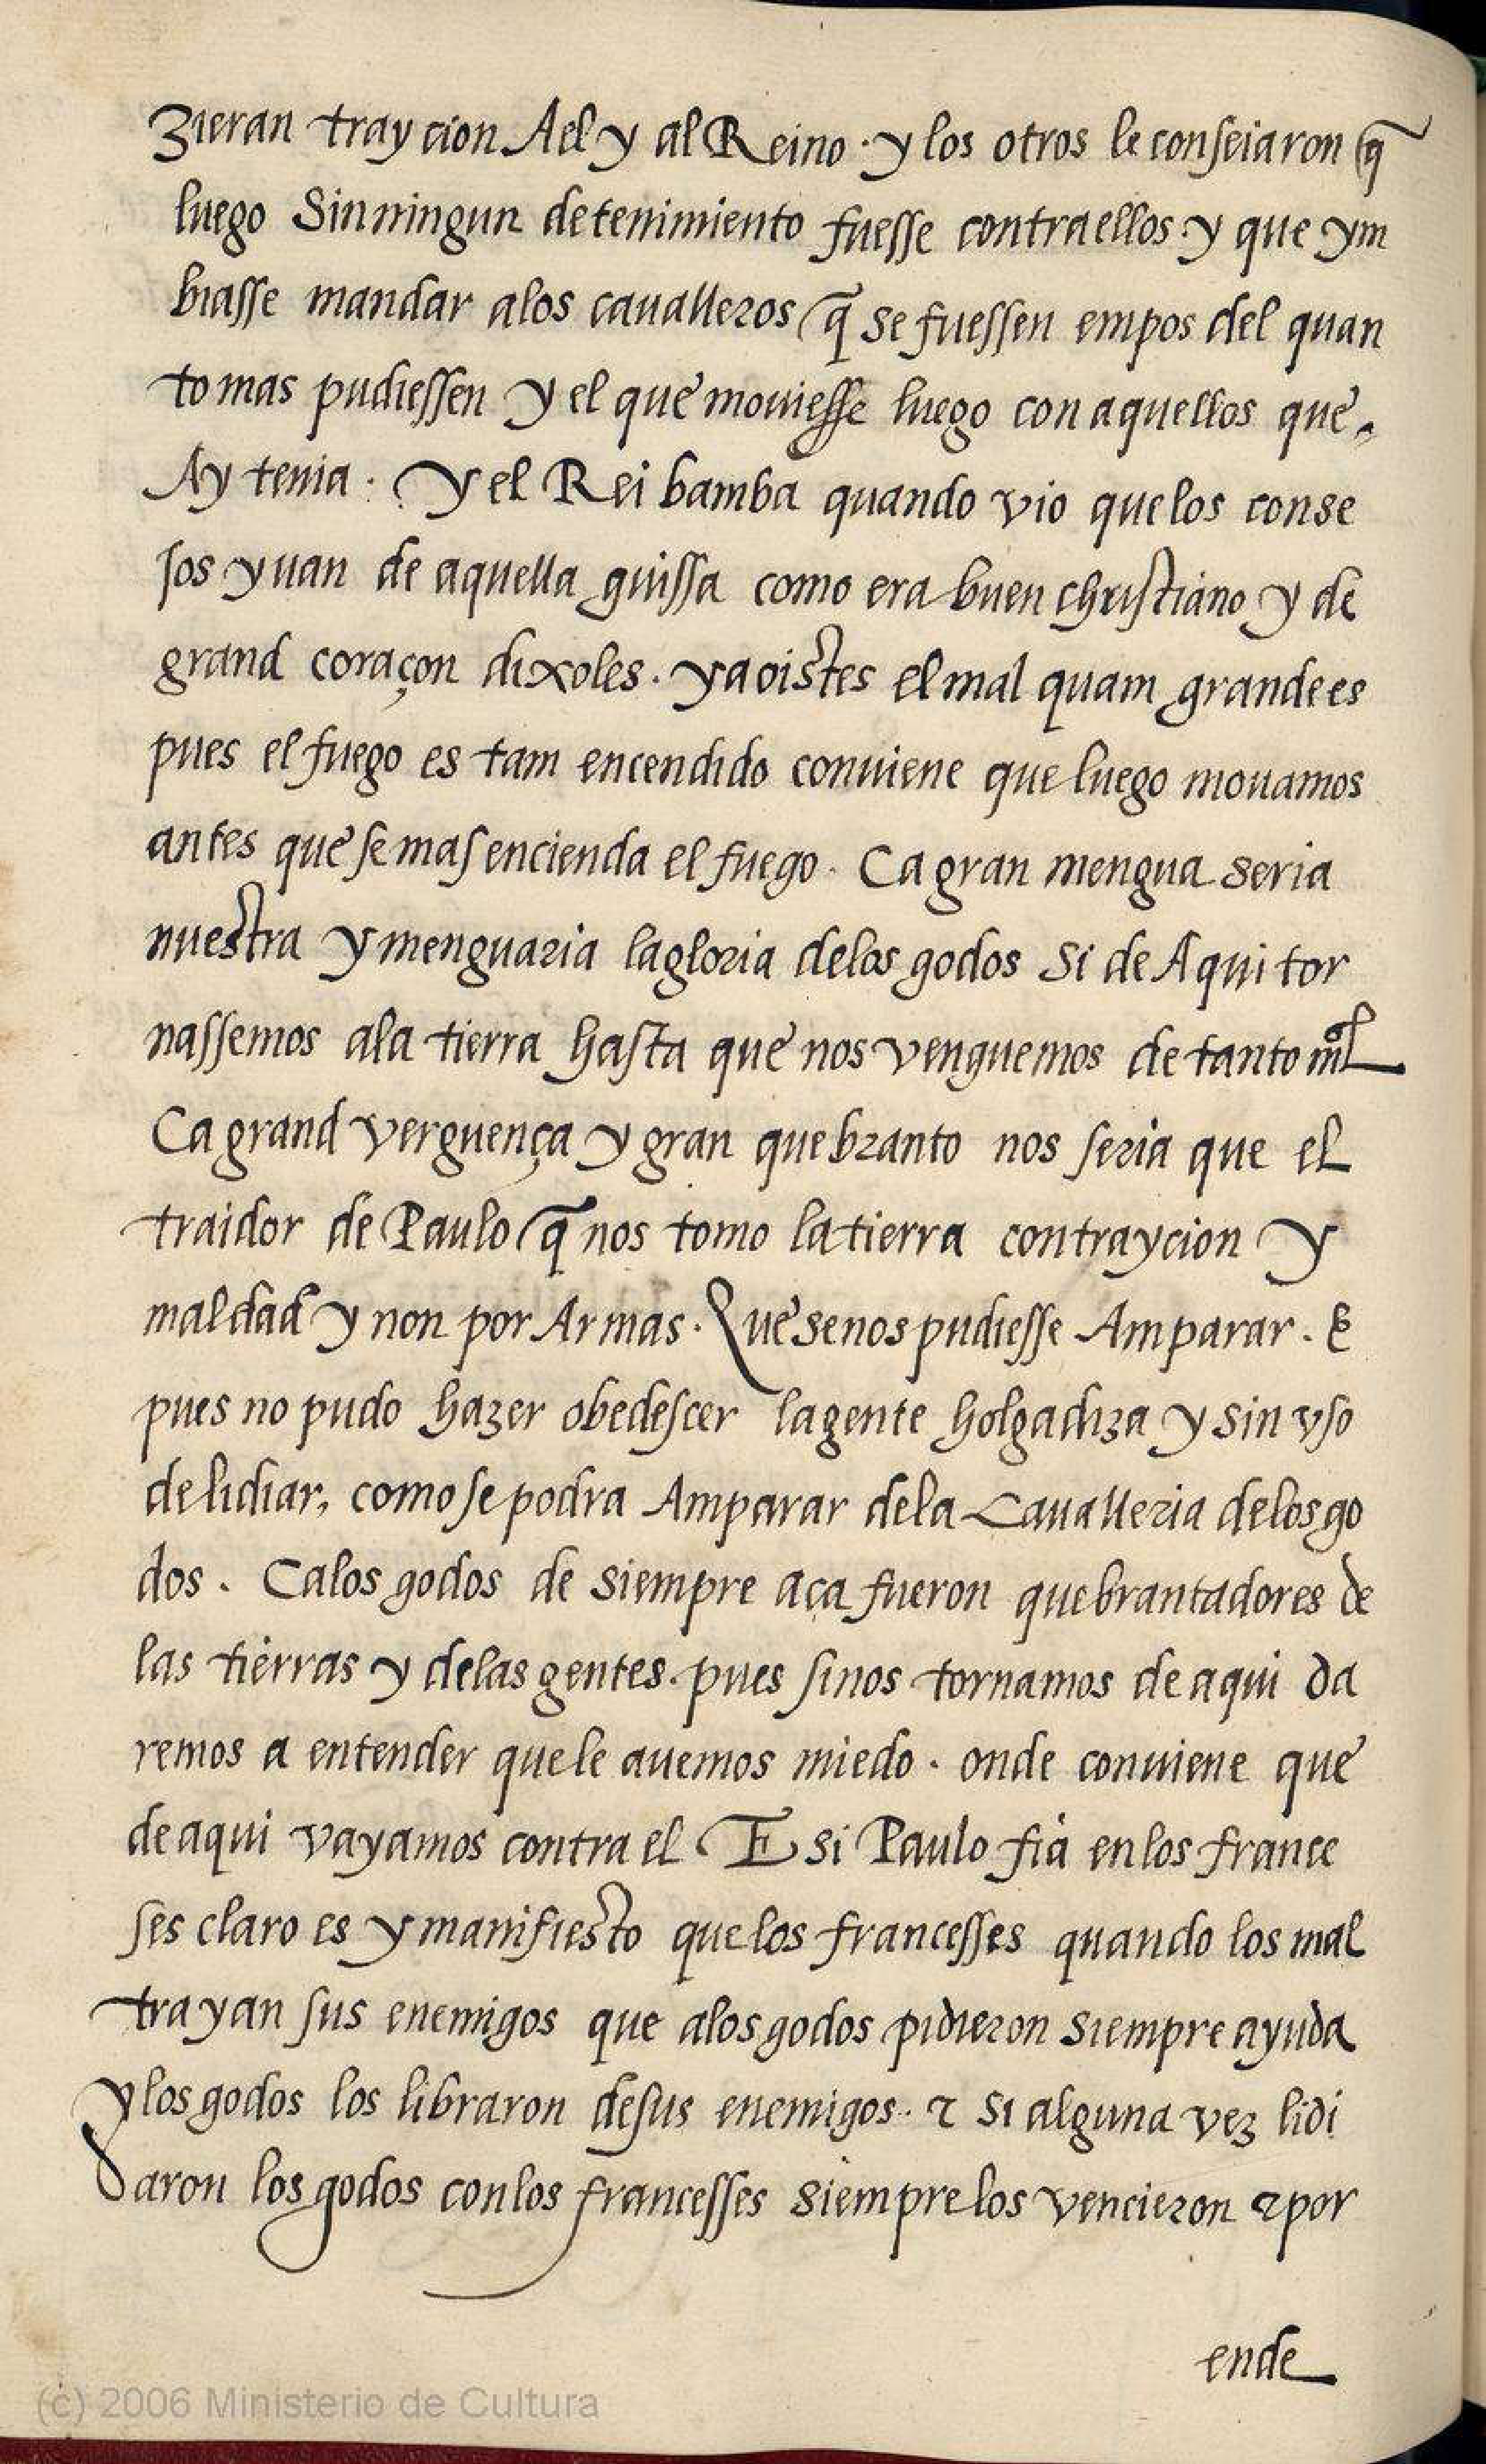 zieran traycion Ael y al Reino · y los otros le conseiaron q̃
luego Sin ningun detenimiento fuesse contra ellos · y que ym
biasse mandar alos caualleros q̃ se fuessen empos del quan
to mas pudiessen y el que mouiesse luego con aquellos que
Ay tenia · Y el Rei bamba quando vio que los conse
jos yuan de aquella guissa como era buen christiano y de
grand coraçon dixoles · ya oistes el mal quam grande es
pues el fuego es tam encendido conuiene que luego mouamos
antes que se mas encienda el fuego · Ca gran mengua seria
nuestra y menguaria la gloria delos godos Si de Aqui tor
nassemos ala tierra hasta que nos venguemos de tanto mal
Ca grand verguença y gran quebranto nos seria que el
traidor de Paulo q̃ nos tomo la tierra con traycion y
maldad y non por Armas · Que se nos pudiesse Amparar · E
pues no pudo hazer obedescer la gente holgadiza y sin vso
de lidiar, como se podra Amparar dela Caualleria delos go
dos · Ca los godos de siempre aca fueron quebrantadores de
las tierras y delas gentes · pues si nos tornamos de aqui da
remos a entender que le auemos miedo · onde conuiene que
de aqui vayamos contra el E si Paulo fia en los france
ses claro es y manifiesto que los francesses quando los mal
trayan sus enemigos que alos godos pidieron siempre ayuda
y los godos los libraron de sus enemigos · τ si alguna vez lidi
aron los godos con los francesses siempre los vencieron τ por
ende
(c) 2006 Ministerio de Cultura